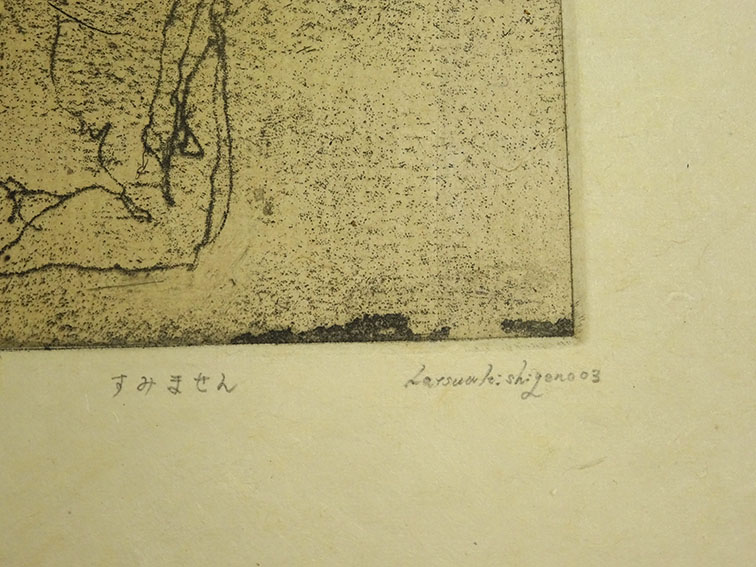 すみません
Katsuaki Shigeno 03